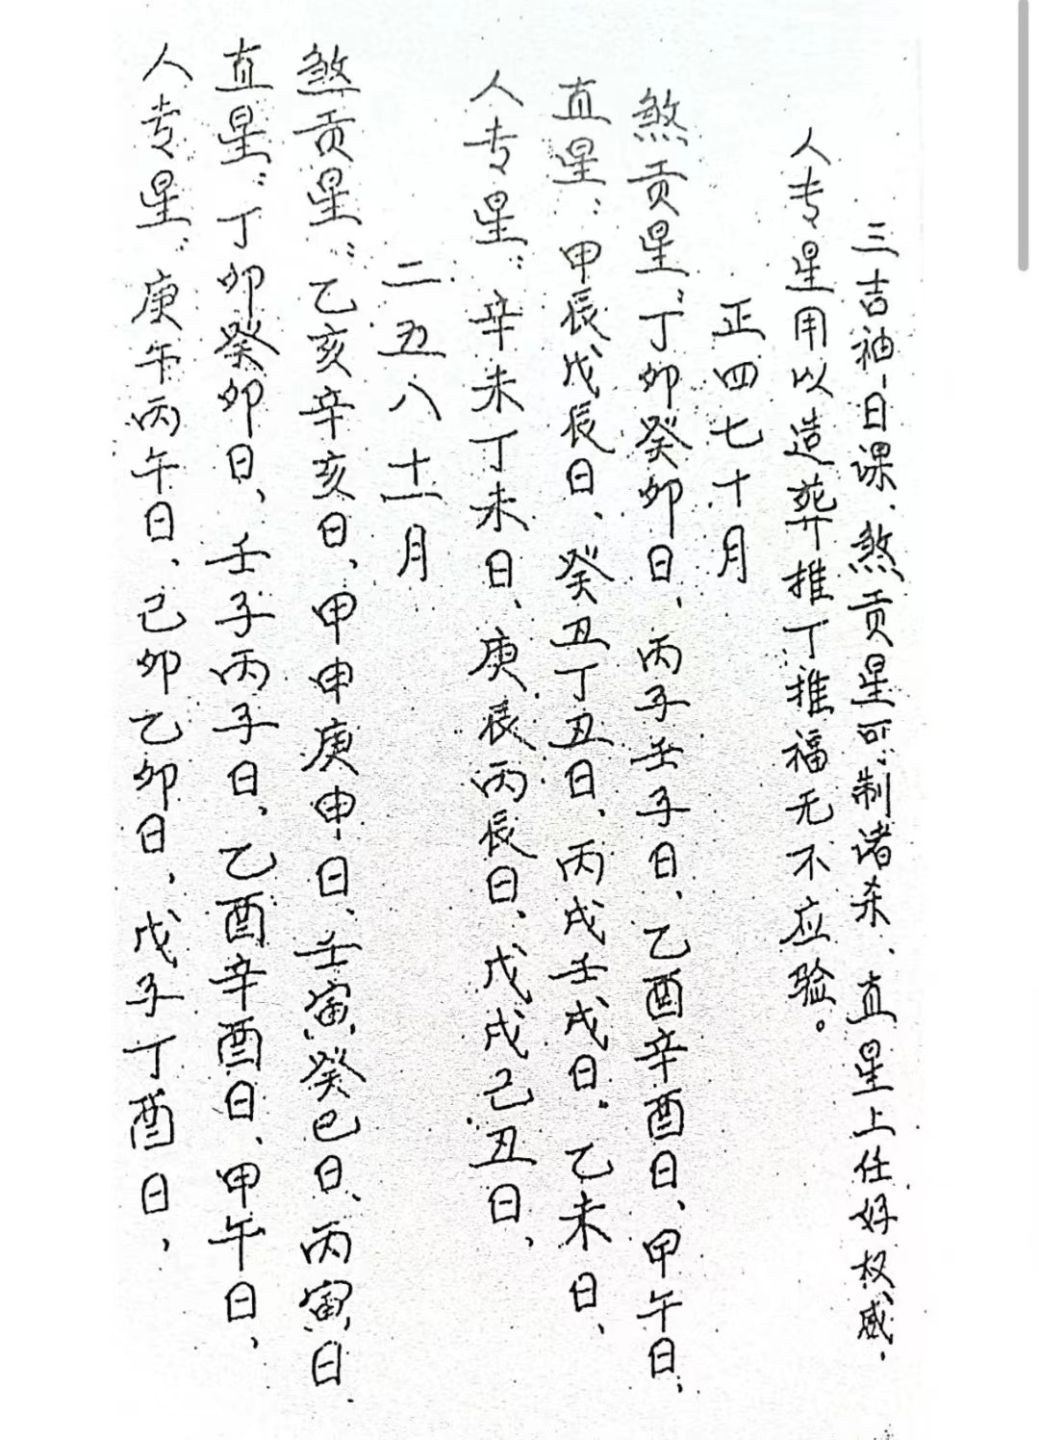 三吉神日课、煞贡星可制诸杀、直星上任好权威，
人专星用以造葬推丁推福无不应验。
正四七十月
煞贡星：丁卯癸卯日、丙子壬子日、乙酉辛酉日、甲午日、
直星：甲辰戊辰日、癸丑丁丑日、丙戌壬戌日。乙未日、
人专星：辛未丁未日、庚辰丙辰日、戊戌己丑日、
二五八十一月
煞贡星：乙亥辛亥日、甲申庚申日、壬寅癸巳日、丙寅日、
直星：丁卯癸卯日、壬子丙子日、乙酉辛酉日、甲午日、
人专星：庚午丙午日、己卯乙卯日，戊子丁酉日，